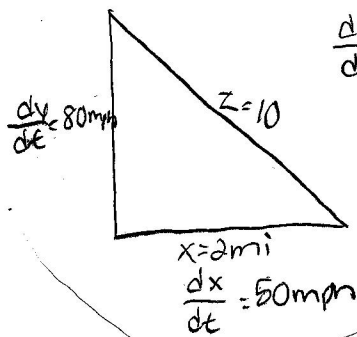 d
d
dy
dt = 80mph
z=10
x=2mi
dx
dt = 50mph